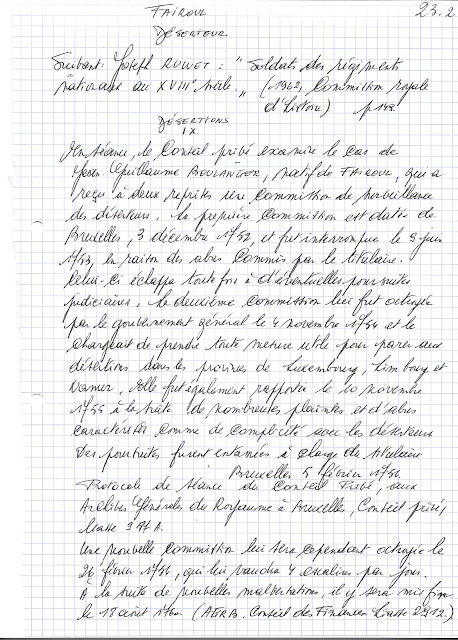 FAIROUL
23.2.
DÉSERTEUR.
Suivant Joseph RUWET : " Soldats des régiments
nationaux au XVIIIe siècle " (1962, Commission royale
d'histoire) p 149.
DÉSERTIONS
IX.
En séance, le Conseil privé examine le cas de
Guillaume BOULANGER, natif de FAIROUL, qui a
reçu à deux reprises une commission de surveillance
des déserteurs. La première commission est datée de
Bruxelles, 3 décembre 1752, et fut interrompue le 9 juin
1753, en raison des abus commis par le titulaire.
Celui-ci échappa toute fois à d'éventuelles poursuites
judiciaires. La deuxième commission lui fut octroyée
par le gouvernement général le 4 novembre 1754 et le
chargeait de prendre toute mesure utile pour parer aux
désertions dans les provinces de Luxembourg, Limbourg et
Namur. Elle fut également rapportée le 10 novembre
1755 à la suite de nombreuses plaintes et d'abus
caractérisés comme de complicité avec les déserteurs
Des poursuites furent entamées à charge du titulaire
Bruxelles 5 février 1756
Protocole de séance du Conseil Privé, aux
Archives Générales du Royaume à Bruxelles, Conseil privé,
liasse A.
Une nouvelle commission lui sera cependant octroyée le
26 février 1756, qui lui vaudra 4 escalins par jour.
A la suite de nouvelles malversations, il y sera mis fin
le 18 août (AGRB. Conseil des Finances liasse 2312.)